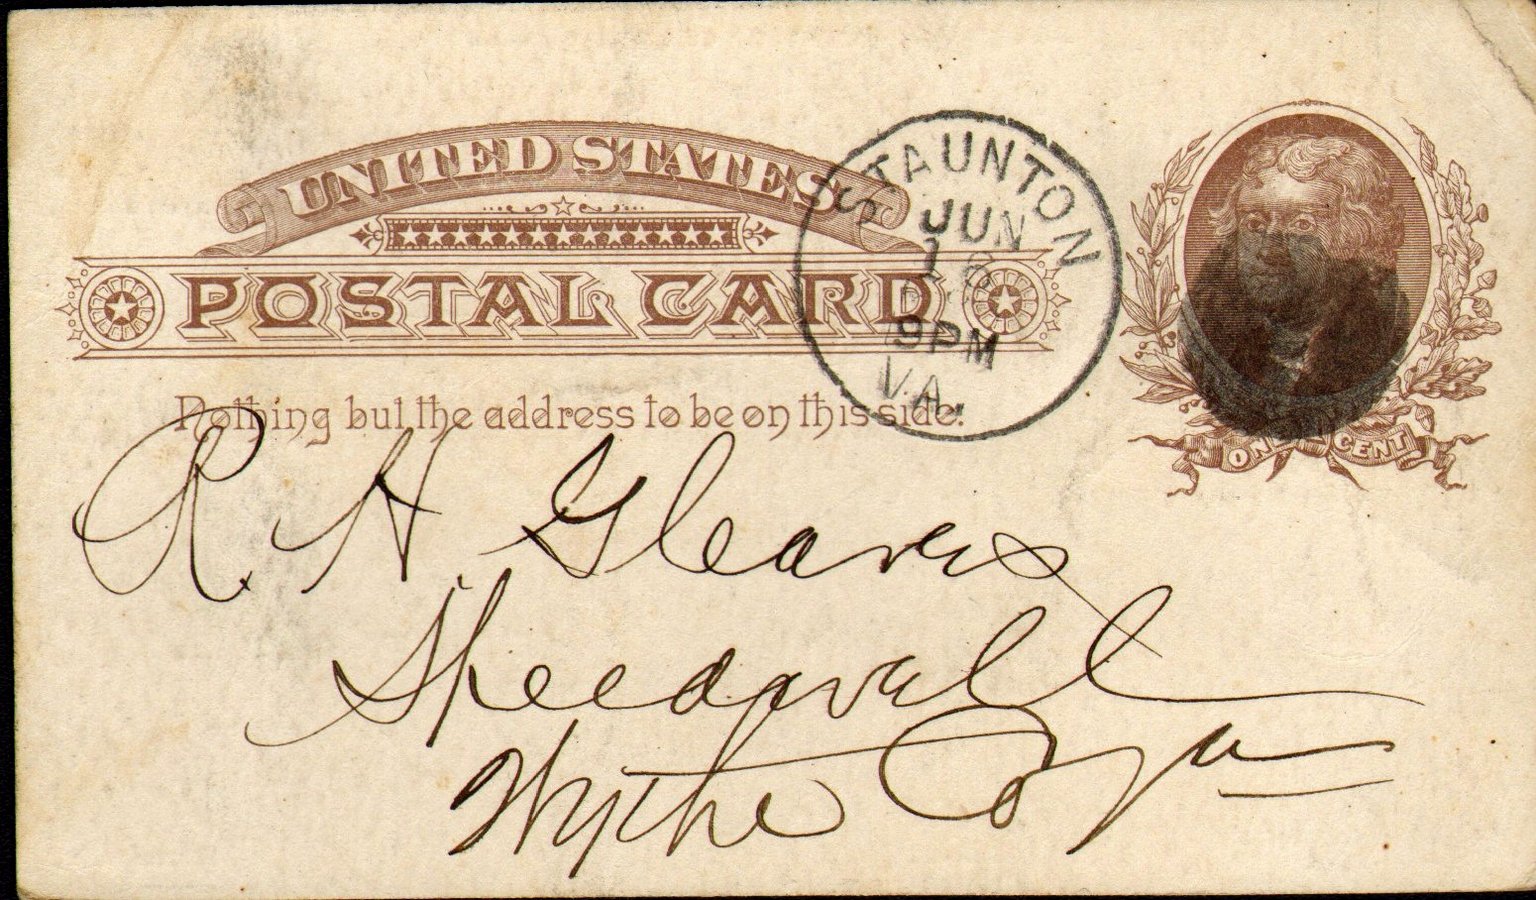 UNITED STATES
POSTAL CARD
Nothing but the address to be on this side.
STAUNTON
JUN
16
9PM
VA.
ONE CENT
R. H Gleaves
Speedwell
Wythe Co Va